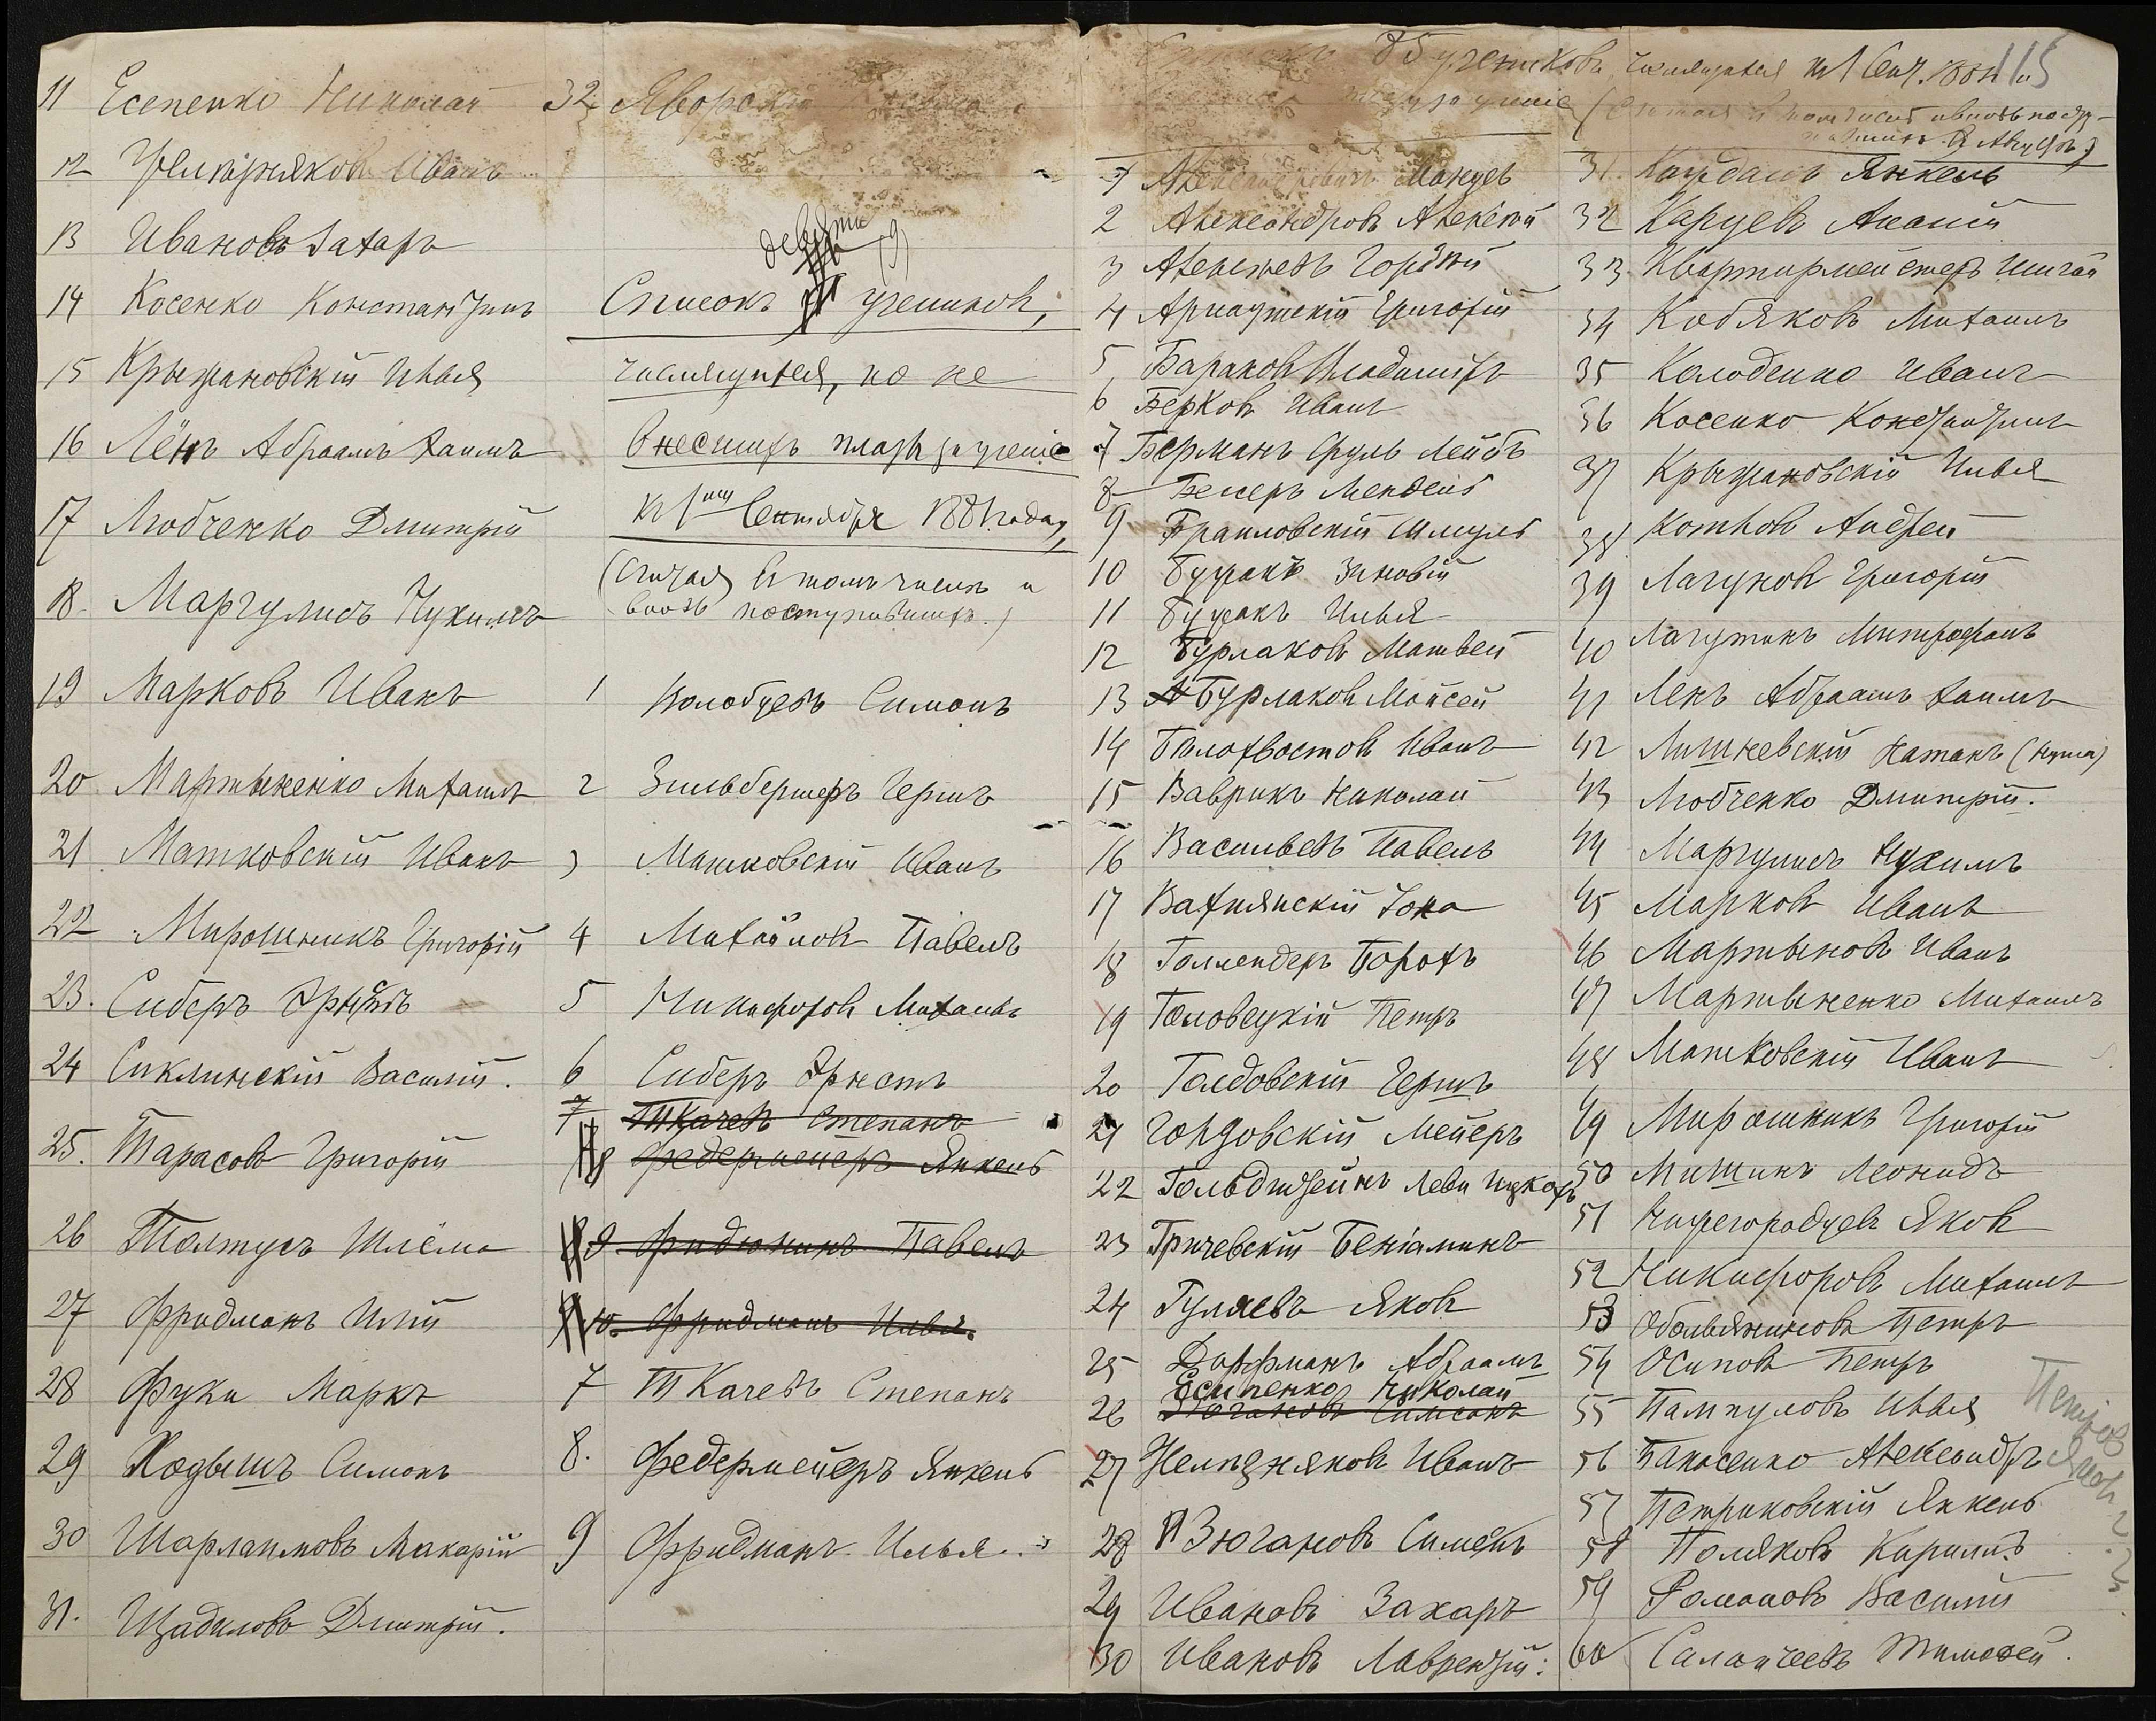 11 Есепенко Николай
12 Иванъ
13 Ивановъ Захаръ
14 Косенко Константинъ
15 Крыжановскій Илья
16 Лёнъ Абраамъ Хаимъ
17 Любченко Дмитрій
18 Маргулисъ Нухимъ
19 Марковъ Иванъ
20 Мартыненко Михаилъ
21 Матковскій Иванъ
22 Мирошникъ Григорій
23. Сиберъ Эрнстъ
24 Сиклинскій Василій.
25. Тарасовъ Григорій
26 Толтусъ Шлёма
27 Фридманъ Илій
28 Фуки Маркъ
29 Ходышъ Симонъ
30 Шарлаимовъ Макарій
31. Щадиловъ Дмитрій.
32 Яворскій
девяти (9)
Списокъ учениковъ,
числящихся, но не
внесшихъ платы за ученіе
къ 1му Сентября 1881 года,
(считая въ томъ числѣ и
вновь поступившихъ.)
1 Колобцевъ Симонъ
2 Зильбершеръ Гершъ
3 Матковскій Иванъ
4 Михайловъ Павелъ
5 Никифоровъ Михаилъ
6 Сиберъ Эрнстъ
7 Ткачевъ Степанъ
8 Федермейеръ Янкель
9 Фидюнинъ Павелъ
10. Фридманъ Илья.
7 Ткачевъ Степанъ
8. Федермейеръ Янкель
9 Фридманъ Илья.
115
85 учениковъ, числящихся къ 1 Сент. 1881 г.
за ученіе (считая въ томъ числѣ и вновь посту-
пившихъ въ Августѣ)
1 Мануель
2 Александровъ Алексѣй
3 Алексѣевъ Гордѣй
4 Арнаутскій Григорій
5 Бараковъ Владиміръ
6 Берковъ Иванъ
7 Берманъ Сруль Лейбъ
8 Бессеръ Мендель
9 Браиловскій Шмуль
10 Буракъ Зиновій
11 Буракъ Илья
12 Бурлаковъ Матвей
13 Бурлаковъ Моисей
14 Бѣлохвостовъ Иванъ
15 Ваврикъ Николай
16 Васильевъ Павелъ
17 Вахнянскій Іона
18 Голлендеръ Борохъ
19 Головецкій Петръ
20 Голдовскій Гершъ
21 Гордовскій Мейеръ
22 Гольдштейнъ Леви Ицкохъ
23 Гричевскій Беніаминъ
24 Гуляевъ Яковъ
25 Дорфманъ Абраамъ
Есипенко Николай
26 Зюгановъ Симеонъ
27 Иванъ
28 Зюгановъ Симеонъ
29 Ивановъ Захаръ
30 Ивановъ Лаврентій.
31. Кагданъ Янкель
32 Карцевъ Ананій
33. Квартирмейстеръ Ишгая
34 Кобяковъ Михаилъ
35 Колоденко Иванъ
36 Косенко Константинъ
37 Крыжановскій Илья
38 Котковъ Андрей
39 Лагуновъ Григорій
40 Лагутинъ Митрофанъ
41 Ленъ Абраамъ Хаимъ
42 Лишневскій Натанъ (Нусинъ)
43 Любченко Дмитрій.
44 Маргулисъ Нухимъ
45 Марковъ Иванъ
46 Мартыновъ Иванъ
47 Мартыненко Михаилъ
48 Матковскій Иванъ
49 Мирошникъ Григорій
50 Мишинъ Леонидъ
51 Нижегородцевъ Яковъ
52 Никифоровъ Михаилъ
53 Обольяниновъ Петръ
54 Осиповъ Петръ
55 Пампуловъ Илья
56 Панасенко Александръ
57 Петриковскій Янкель
58 Поляковъ Кирилъ
59 Романовъ Василій
60 Саланчеевъ Тимофей.
Петров Яков